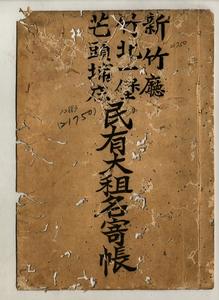 新竹廳
竹北一堡
芒頭埔庄
民有大租名寄帳